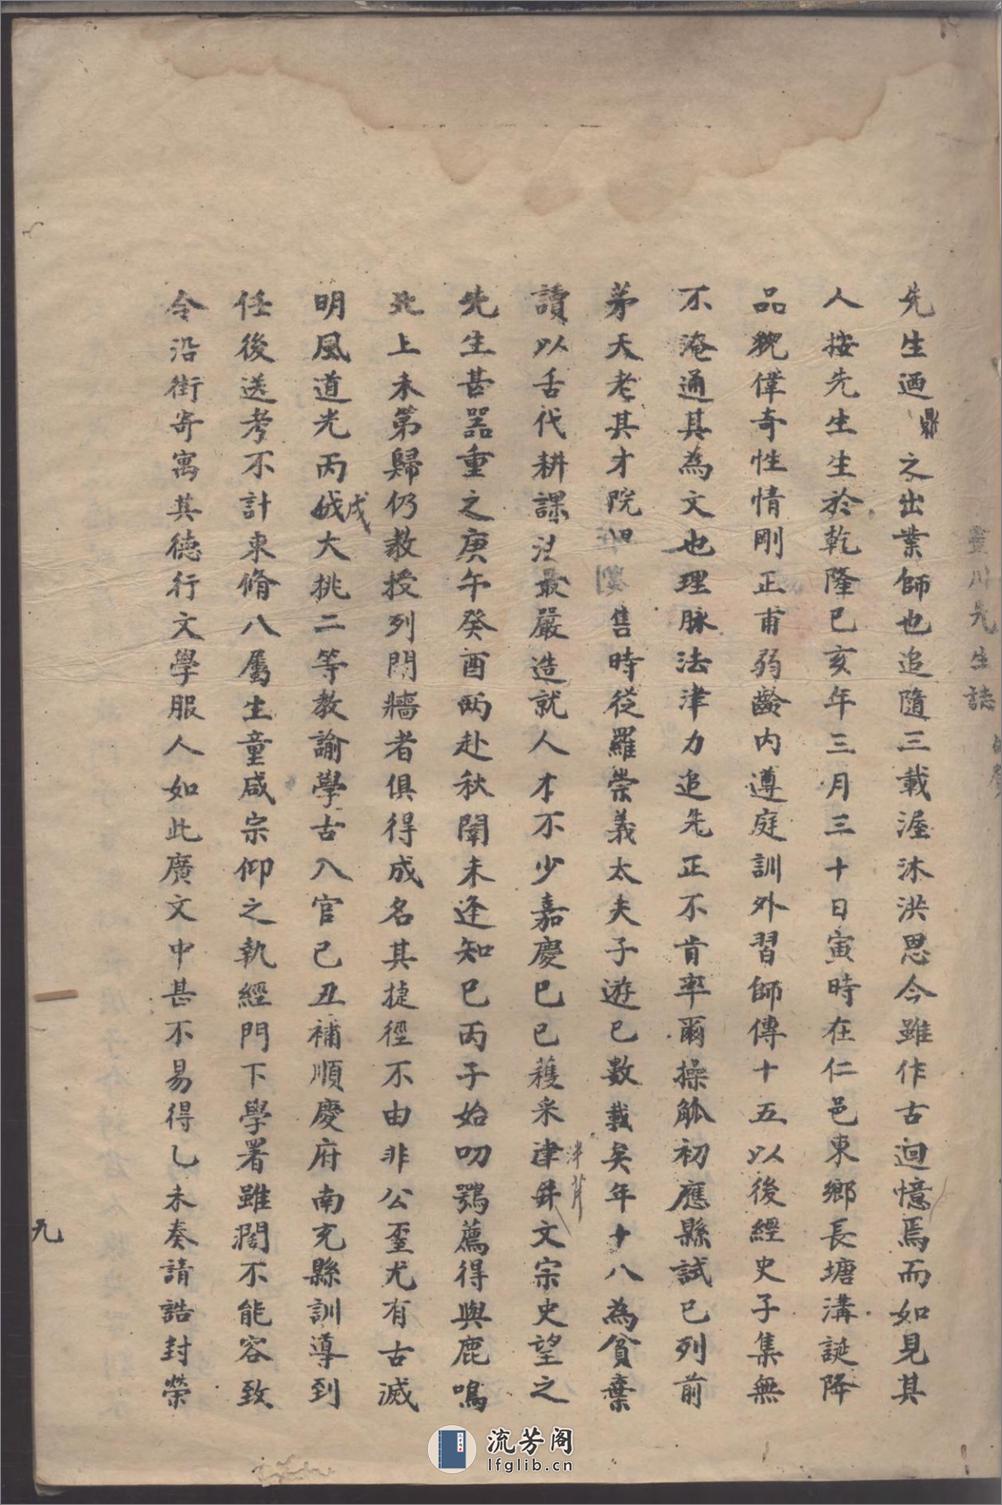 先生迺鼎之出業師也追隨三載渥沐洪恩今雖作古迴憶焉而如見其
人按先生生於乾隆己亥年三月三十日寅時在仁邑東鄉長塘溝誕降
品貌偉奇性情剛正甫弱齡內遵庭訓外習師傳十五以後經史子集無
不淹通其為文也理脉法津力追先正不肯率爾操觚初應縣試已列前
茅天老其才院售時從羅崇義太夫子遊已數載矣年十八為貧棄
讀以舌代耕課法最嚴造就人才不少嘉慶己巳穫采津并文宗史望之
泮芹
先生甚器重之庚午癸酉兩赴秋闈未逢知己丙子始叨鶚薦得與鹿鳴
北上未第歸仍教授列門牆者俱得成名其捷徑不由非公室尤有古滅
明風道光丙戌大挑二等教諭學古入官己丑補順慶府南充縣訓導到
戌
任後送考不計束脩八屬生童咸宗仰之執經門下學署雖濶不能容致
令沿街寄寓其德行文學服人如此廣文中甚不易得乙未奏請誥封榮
靈川先生誌
九
流芳阁
lfglib.cn